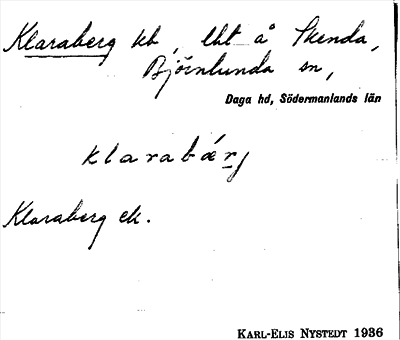 Klaraberg kb, lht å Skenda,
Björnlunda sn,
Daga hd, Södermanlands län
klarabærj
Klaraberg ek.
KARL-ELIS NYSTEDT 1936